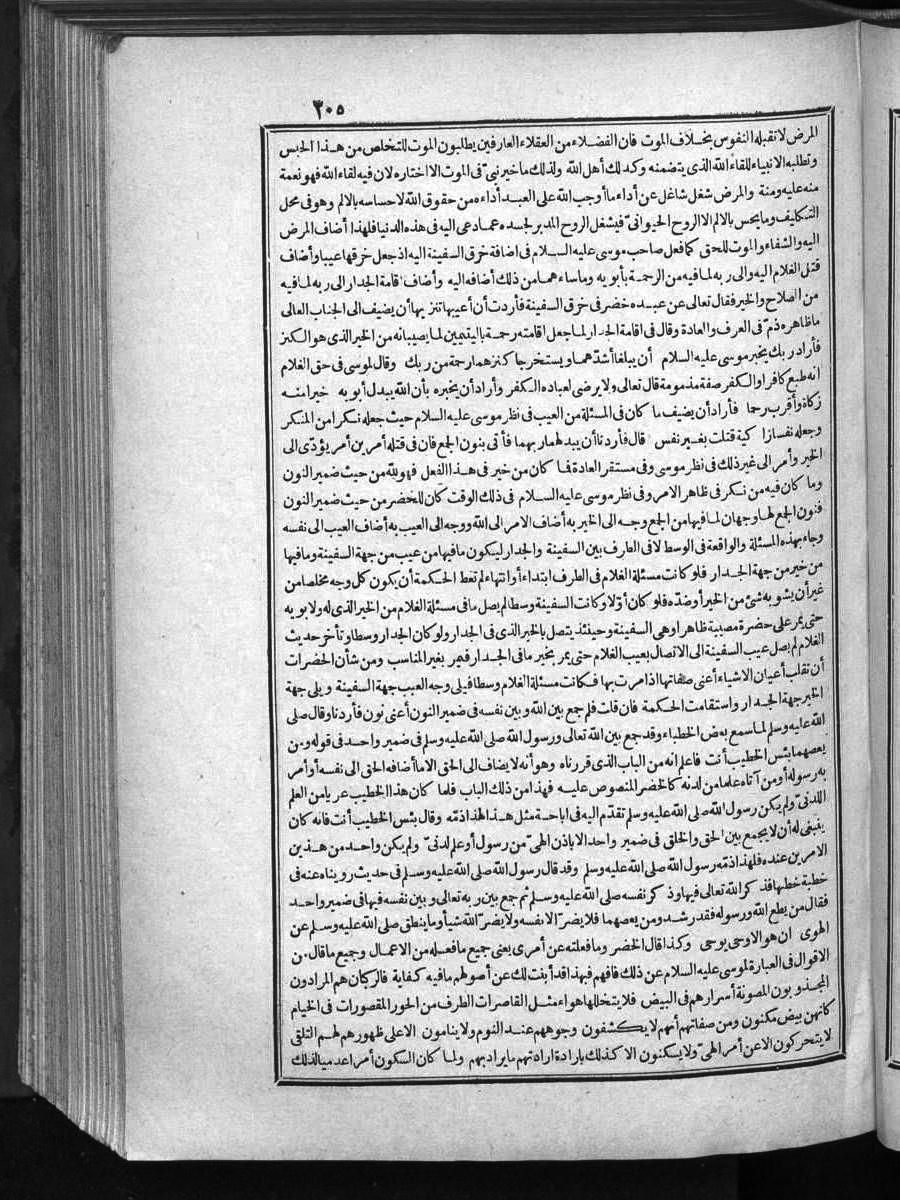 ٣٠٥
المرض لا تقبله النفوس بخلاف الموت فان الفضلاء من العقلاء العارفين يطلبون الموت للتخلص من هذا الحبس
وتطلبه الانبياء للقاء الله الذى يتضمنه وكذلك أهل الله ولذلك ما خير نبىّ فى الموت الا اختاره لان فيه لقاء الله فهو نعمة
منه عليه ومنة والمرض شغل شاغل عن أداء ما أوجب الله على العبد أداءه من حقوق الله لاحساسه بالالم وهو فى محل
التكليف وما يحس بالالم الا الروح الحيوانىّ فيشغل الروح المدبر لجسده عما دعى اليه فى هذه الدنيا فلهذا أضاف المرض
اليه والشفاء والموت للحق كما فعل صاحب موسى عليه السلام فى اضافة خرق السفينة اليه اذ جعل خرقها عيبا وأضاف
قتل الغلام اليه والى ربه لما فيه من الرحمة بأبويه وما ساءهما من ذلك أضافه اليه وأضاف اقامة الجدار الى ربه لما فيه
من الصلاح والخير فقال تعالى عن عبده خضر فى خرق السفينة فأردت أن أعيبها تنزيها أن يضيف الى الجناب العالى
ما ظاهره ذمّ فى العرف والعادة وقال فى اقامة الجدار لما جعل اقامته رحمة باليتيمين لما يصيبانه من الخير الذى هو الكنز
فأراد ربك يخبر موسى عليه السلام أن يبلغا أشدّهما ويستخرجا كنزهما رحمة من ربك وقال لموسى فى حق الغلام
انه طبع كافرا والكفر صفة مذمومة قال تعالى ولا يرضى لعباده الكفر وأراد أن يخبره بأن الله يبدل أبويه خيرا منه
زكاة وأقرب رحما فأراد أن يضيف ما كان فى المسئلة من العيب فى نظر موسى عليه السلام حيث جعله نكرا من المنكر
وجعله نفسا زاكية قتلت بغير نفس قال فأردنا أن يبدلهما ربهما فأتى بنون الجمع فان فى قتله أمرين أمر يؤدّى الى
الخير وأمر الى غير ذلك فى نظر موسى وفى مستقر العادة فما كان من خير فى هذا الفعل فهو لله من حيث ضمير النون
وما كان فيه من نكر فى ظاهر الامر وفى نظر موسى عليه السلام فى ذلك الوقت كان للخضر من حيث ضمير النون
فنون الجمع لها وجهان لما فيها من الجمع وجه الى الخير به أضاف الامر الى الله ووجه الى العيب به أضاف العيب الى نفسه
وجاء بهذه المسئلة والواقعة فى الوسط لا فى الطرف بين السفينة والجدار ليكون ما فيها من عيب من جهة السفينة وما فيها
من خير من جهة الجدار فلو كانت مسئلة الغلام فى الطرف ابتداء أو انتهاء لم تعط الحكمة أن يكون كل وجه مخلصا من
غير أن يشوبه شئ من الخير أو ضدّه فلو كان أوّلا وكانت السفينة وسطا لم يصل ما فى مسئلة الغلام من الخير الذى له ولابويه
حتى يمر على حضرة مصيبة ظاهرا وهى السفينة وحينئذ يتصل بالخير الذى فى الجدار ولو كان الجدار وسطا وتأخر حديث
الغلام لم يصل عيب السفينة الى الاتصال بعيب الغلام حتى يمر بخير ما فى الجدار فيمر بغير المناسب ومن شأن الحضرات
أن تقلب أعيان الاشياء أعنى صفاتها اذا مرت بها فكانت مسئلة الغلام وسطا فيلى وجه العيب جهة السفينة ويلى جهة
الخير جهة الجدار واستقامت الحكمة فان قلت فلم جمع بين الله وبين نفسه فى ضمير النون أعنى نون فأردنا وقال صلى
الله عليه وسلم لما سمع بعض الخطباء وقد جمع بين الله تعالى ورسول الله صلى الله عليه وسلم فى ضمير واحد فى قوله ومن
يعصهما بئس الخطيب أنت فاعلم انه من الباب الذى قررناه وهو أنه لا يضاف الى الحق الا ما أضافه الحق الى نفسه أو أمر
به رسوله أو من آتاه علما من لدنه كالخضر المنصوص عليه فهذا من ذلك الباب فلما كان هذا الخطيب عريا من العلم
اللدنىّ ولم يكن رسول الله صلى الله عليه وسلم تقدّم اليه فى اباحة مثل هذا لهذا ذمّه وقال بئس الخطيب أنت فانه كان
ينبغى له أن لا يجمع بين الحق والخلق فى ضمير واحد الا باذن الهىّ من رسول أو علم لدنىّ ولم يكن واحد من هذين
الامرين عنده فلهذا ذمّه رسول الله صلى الله عليه وسلم وقد قال رسول الله صلى الله عليه وسلم فى حديث رويناه عنه فى
خطبة خطبها فذكر الله تعالى فيها وذكر نفسه صلى الله عليه وسلم ثم جمع بين ربه تعالى وبين نفسه فيها فى ضمير واحد
فقال من يطع الله ورسوله فقد رشد ومن يعصهما فلا يضرّ الا نفسه ولا يضرّ الله شيأ وما ينطق صلى الله عليه وسلم عن
الهوى ان هو الا وحى يوحى وكذا قال الخضر وما فعلته عن أمرى يعنى جميع ما فعله من الاعمال وجميع ما قال من
الاقوال فى العبارة لموسى عليه السلام عن ذلك فافهم فبهذا قد أبنت لك عن أصولهم ما فيه كفاية فالركبان هم المرادون
المجذوبون المصونة أسرارهم فى البيض فلا يتخللها هواء مثل القاصرات الطرف من الحور المقصورات فى الخيام
كانهن بيض مكنون ومن صفاتهم أنهم لا يكشفون وجوههم عند النوم ولا ينامون الا على ظهورهم لهم التلقى
لا يتحركون الا عن أمر الهىّ ولا يسكنون الا كذلك بارادة ارادتهم ما يراد بهم ولما كان السكون أمرا عدميا لذلك